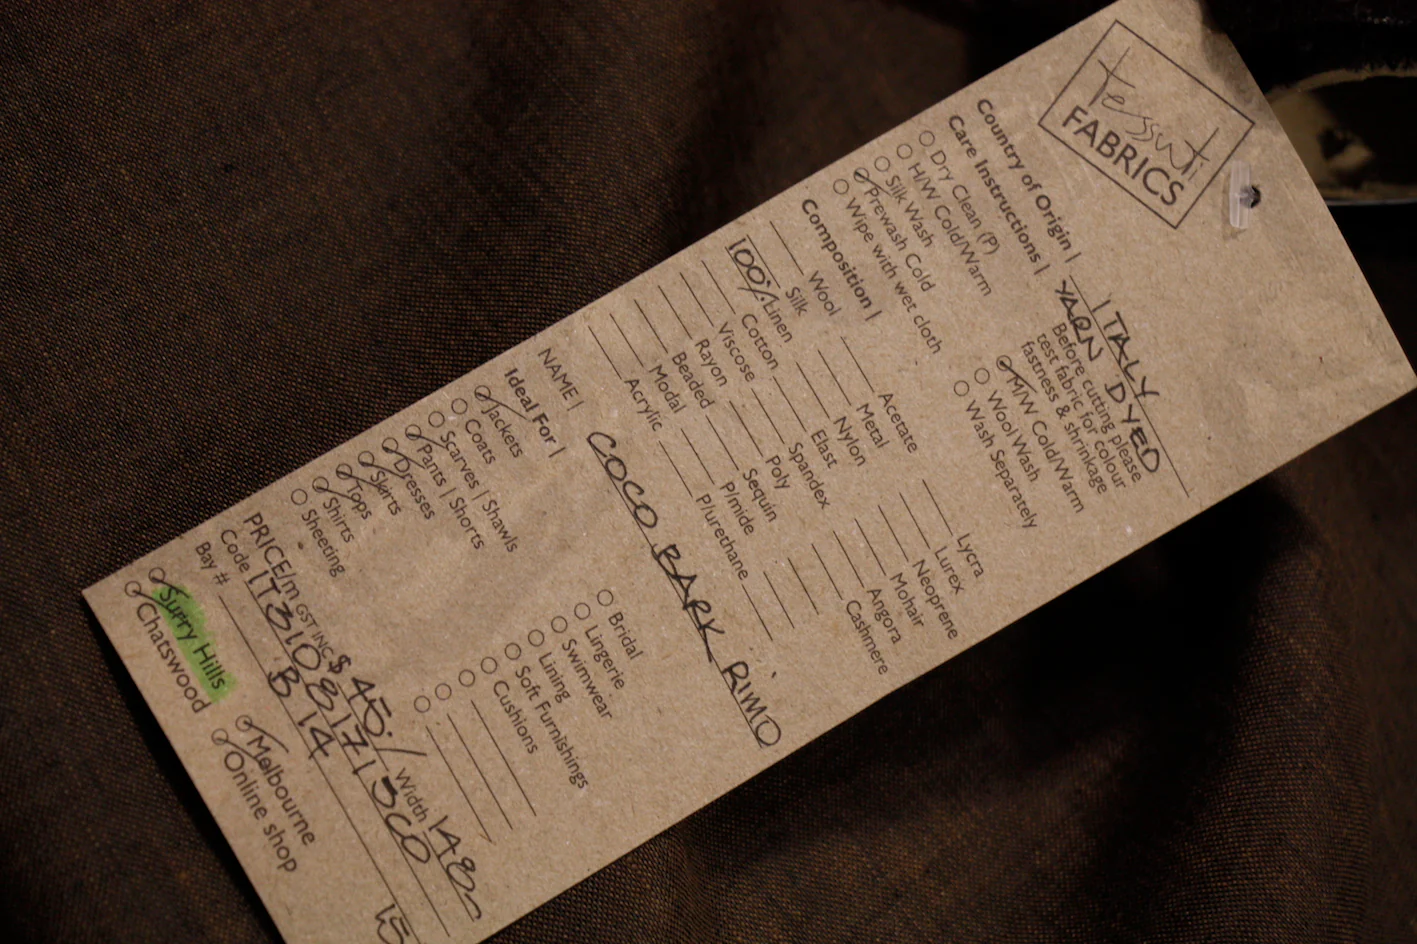 tessuti
FABRICS
Country of Origin | ITALY
YARN DYED
Care Instructions |
Before cutting please
test fabric for colour
fastness & shrinkage
Dry Clean (P)
H/W Cold/Warm
Silk Wash
Prewash Cold
Wipe with wet cloth
M/W Cold/Warm
Wool Wash
Wash Separately
Composition |
Wool
Silk
100% Linen
Cotton
Viscose
Rayon
Beaded
Modal
Acrylic
Acetate
Metal
Nylon
Elast
Spandex
Poly
Sequin
P/mide
P/urethane
Lycra
Lurex
Neoprene
Mohair
Angora
Cashmere
NAME | COCO BARK RIMO
Ideal For |
Jackets
Coats
Scarves | Shawls
Pants | Shorts
Dresses
Skirts
Tops
Shirts
Sheeting
Bridal
Lingerie
Swimwear
Lining
Soft Furnishings
Cushions
PRICE/m GST INC $ 45./ Width 148
Bay # B 14
Surry Hills
Chatswood
Melbourne
Online shop